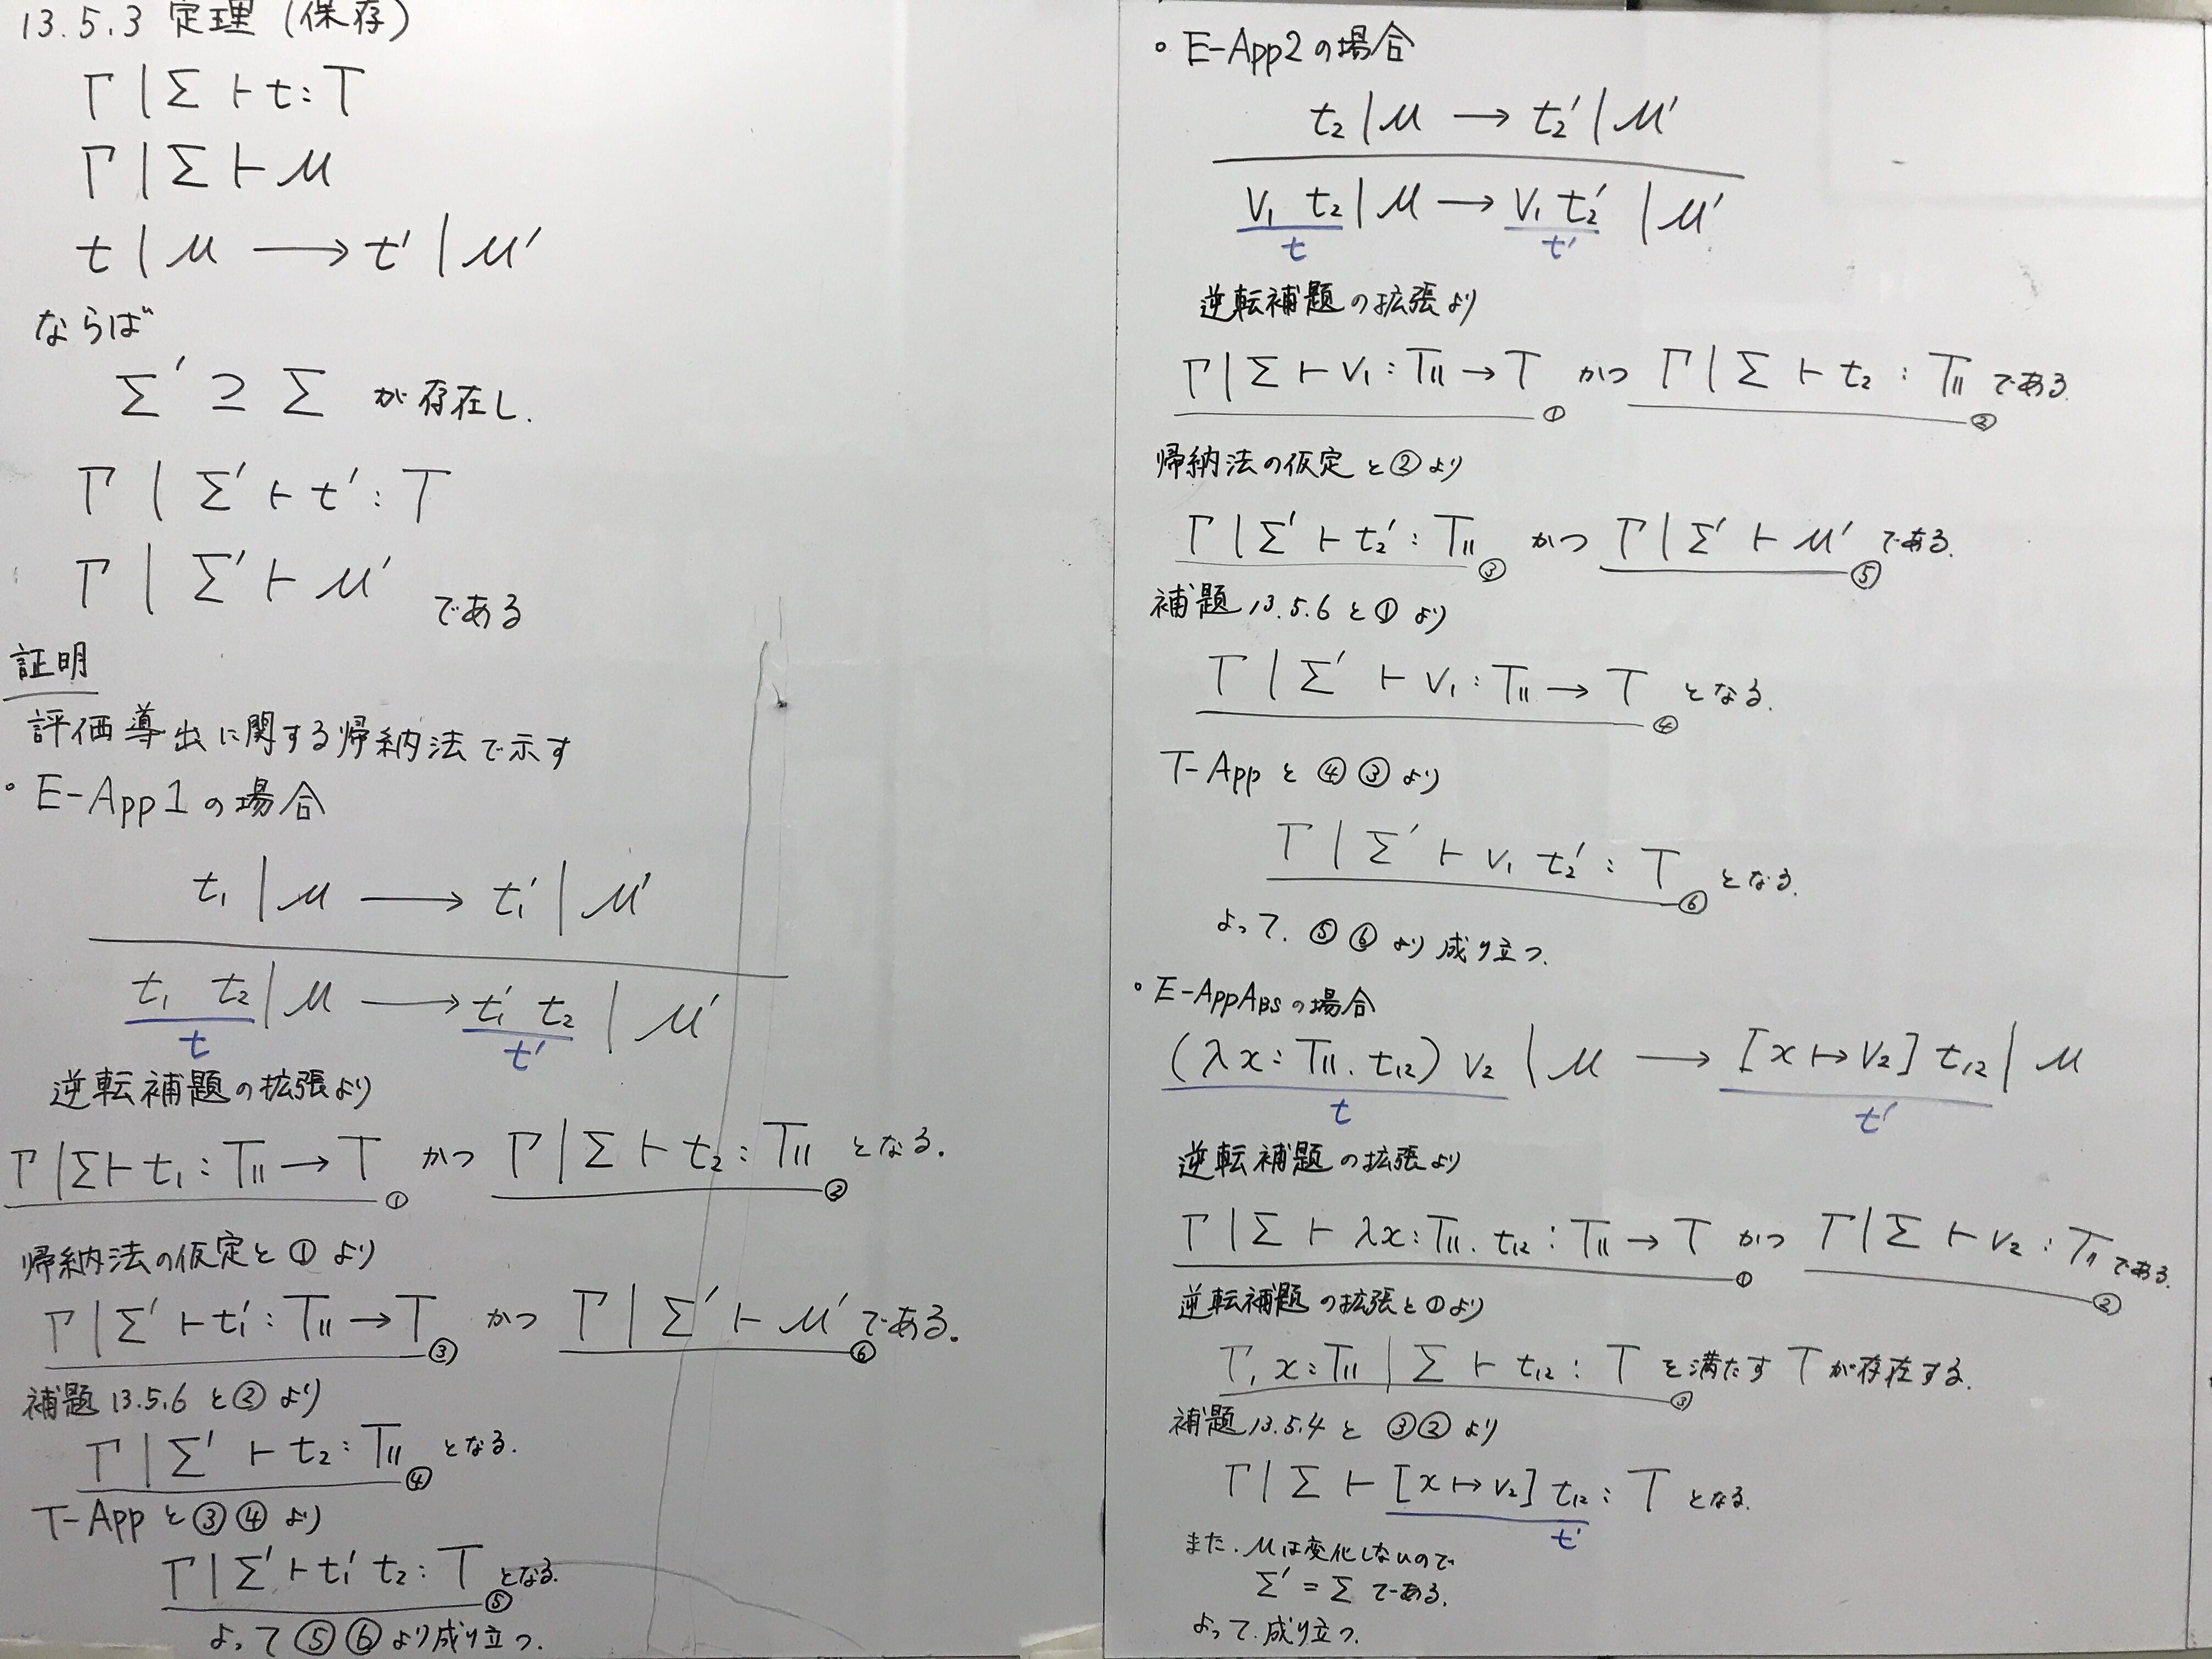 13.5.3 定理 (保存)
Γ | Σ ⊢ t : T
Γ | Σ ⊢ μ
t | μ ⟶ t' | μ'
ならば
Σ' ⊇ Σ が存在し.
Γ | Σ' ⊢ t' : T
Γ | Σ' ⊢ μ' である
証明
評価導出に関する帰納法で示す
• E-App1の場合
t₁ | μ ⟶ t₁' | μ'
t₁ t₂ | μ ⟶ t₁' t₂ | μ'
t t'
逆転補題の拡張より
Γ | Σ ⊢ t₁ : T₁₁ → T ① かつ Γ | Σ ⊢ t₂ : T₁₁ ② となる.
帰納法の仮定と①より
Γ | Σ' ⊢ t₁' : T₁₁ → T ③ かつ Γ | Σ' ⊢ μ' ⑥ である。
補題13.5.6と②より
Γ | Σ' ⊢ t₂ : T₁₁ ④ となる.
T-Appと③④より
Γ | Σ' ⊢ t₁' t₂ : T ⑤ となる.
よって⑤⑥より成り立つ.
• E-App2の場合
t₂ | μ ⟶ t₂' | μ'
v₁ t₂ | μ ⟶ v₁ t₂' | μ'
t t'
逆転補題の拡張より
Γ | Σ ⊢ v₁ : T₁₁ → T ① かつ Γ | Σ ⊢ t₂ : T₁₁ ② である.
帰納法の仮定と②より
Γ | Σ' ⊢ t₂' : T₁₁ ③ かつ Γ | Σ' ⊢ μ' ⑤ である.
補題13.5.6と①より
Γ | Σ' ⊢ v₁ : T₁₁ → T ④ となる.
T-Appと④③より
Γ | Σ' ⊢ v₁ t₂' : T ⑥ となる.
よって.⑤⑥より成り立つ.
• E-AppAbsの場合
(λx : T₁₁. t₁₂) v₂ | μ ⟶ [x ↦ v₂] t₁₂ | μ
t t'
逆転補題の拡張より
Γ | Σ ⊢ λx : T₁₁. t₁₂ : T₁₁ → T ① かつ Γ | Σ ⊢ v₂ : T₁₁ ② である.
逆転補題の拡張と①より
Γ, x : T₁₁ | Σ ⊢ t₁₂ : T ③ を満たす T が存在する.
補題13.5.4と③②より
Γ | Σ ⊢ [x ↦ v₂] t₁₂ : T となる.
t'
また.μは変化しないので
Σ' = Σ である.
よって.成り立つ.